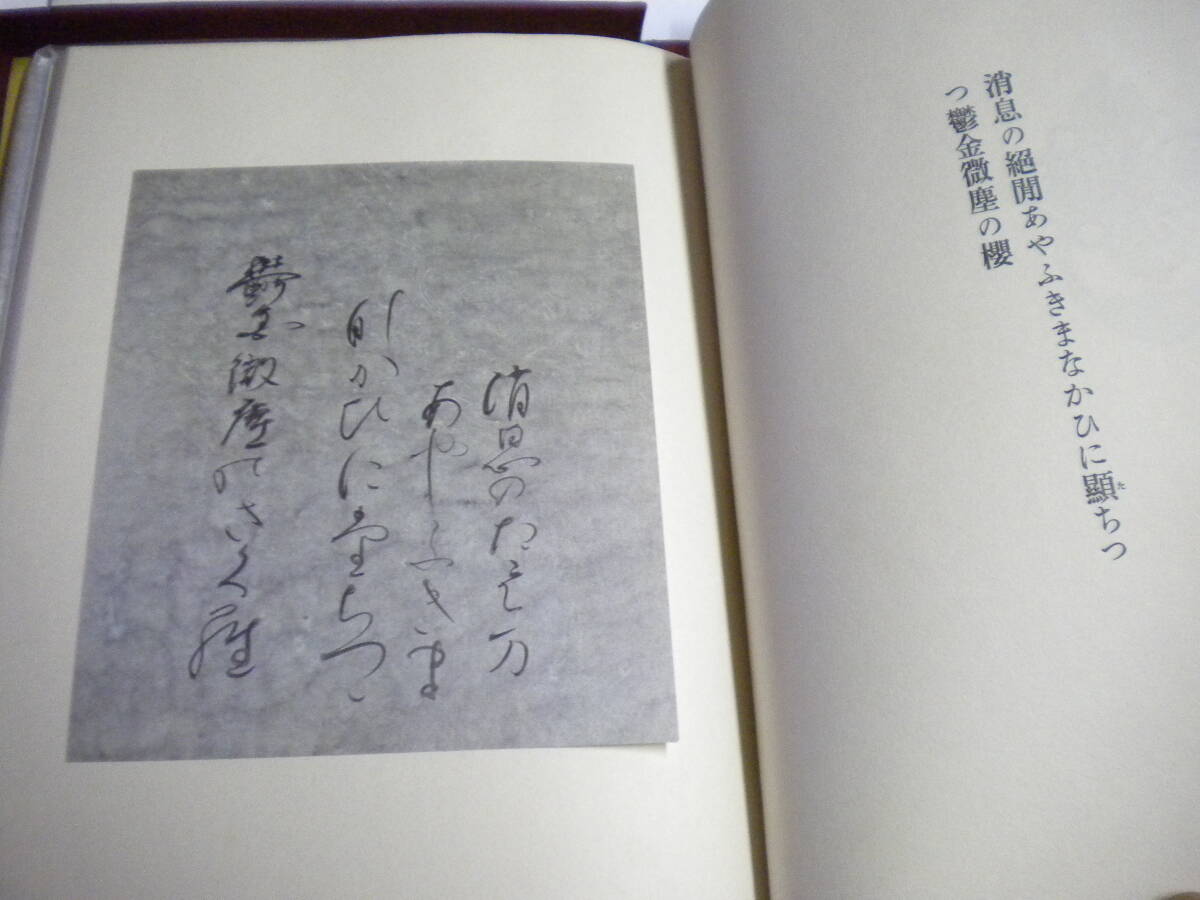 消息の絕閒あやふきまなかひに顯ちつ
た
つ鬱金微塵の櫻
消息のたえ万
あやふきま
那かひに堂ちつゝ
鬱金微塵のさく羅